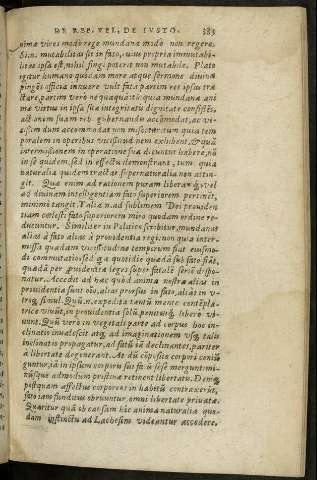 DE REP. VEL, DE IVSTO. 283
nimæ vices modò rege mundana modò non regere.
Si.n. mutabilitas sit in fato, suæ proprià immutabi-
litas ipsa est, nihil sing. poterit non mutabile. Plato
igitur humano quodam more atque sermone diuina
pingēs officia innuere vult fata parem rei ipsius tra
ctare, partim verò ne quaquā: tū quia mundana ani
ma virtus in ipsa sua integritate dignitate consistēs,
actionem suam reb. gubernandis accōmodat, ac vi-
cissim dum accommodat non miscetur: tum quia tem
poralem in operibus vicissitudinem exhibent, & quā
intermissionem in operatione sua dicuntur habere, nō
in se quidem, sed in effectu demonstrant, tum quia
naturalia quidem tractat supernaturalia non attin-
git. Quæ enim ad rationem puram liberamq́; vel
ad diuinam intelligentiam fato superiorem pertinēt,
minimè tangit. Palia n. ad sublimem Dei prouiden
tiam cœlesti fato superiorem miro quodam ordine re-
ducuntur. Similiter in Politico scribitur, mundanas
alias à fato alias à prouidentia regi: non quia inter-
missa quadam vicissitudine temporum fiat eiusmo-
di commutatio: sed q̄ a quotidie quædā sub fato fiāt,
quædā per prouidentiæ leges super fatalē seriē dispo-
natur. Accedit ad hæc quòd anima nostra alias in
prouidentia sunt oīo, alias prorsus in fato, aliàs in v-
troq́; simul. Quū n. expedita tantū mente contēpla-
trice viuūt, in prouidentia solū, penitusq́; liberè vi-
uunt. Quū verò in vegetali parte ad corpus hoc in-
clinatio inualescit atq; ad imaginationem vsq; talis
inclinatio propagatur, ad fatū iā declinantes, pariter
a libertate degenerant. At dū cōposito corpori coniū
guntur, iā in ipsum corpori sui fūsē sese mergunt: mi-
nūsque admodum pristina retinent libertatis. Demq́;
postquam affectus corporeos in habitū contraxerūt,
fato iam funditus obruuntur, omni libertate priuatæ.
Quæritur quā ob causam hic anima naturalia quo-
dam instinctu ad Lachesim videantur accedere,